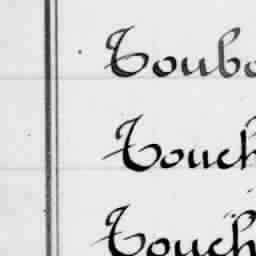 Toubo
Touch
Touch